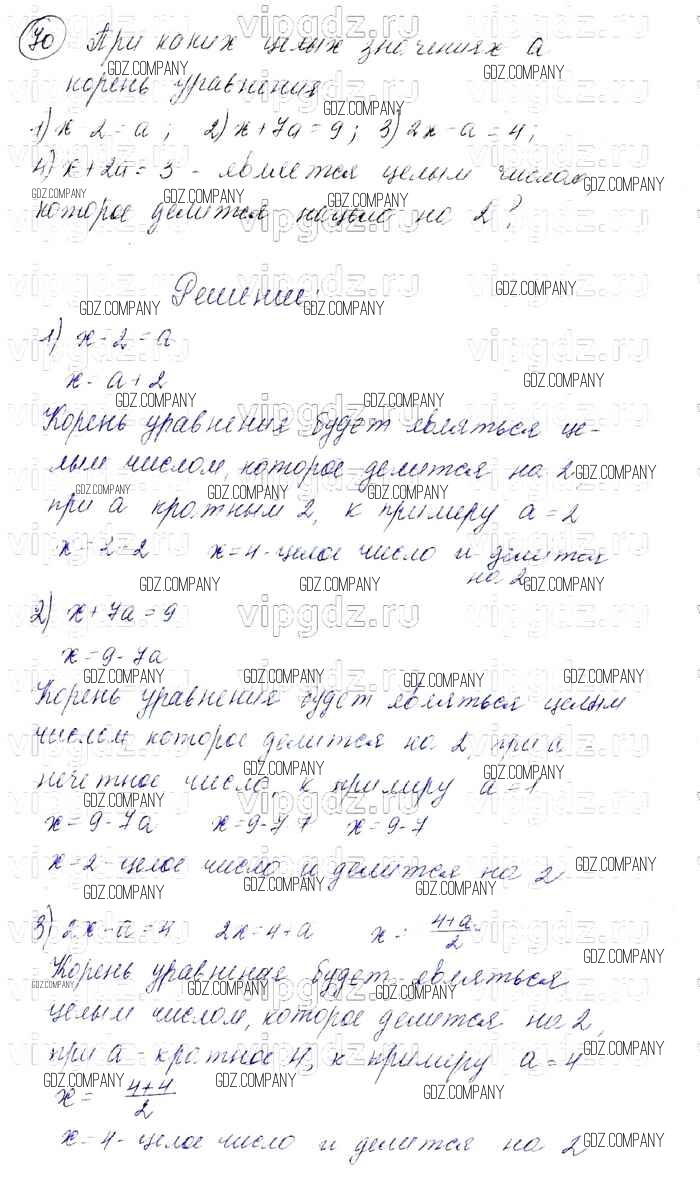 70 При каких целых значениях а
корень уравнения
1) х 2 = а; 2) х + 7а = 9; 3) 2х - а = 4;
4) х + 2а = 3 - является целым числом,
которое делится нацело на 2?
Решение:
1) х - 2 = а
х - а + 2
Корень уравнения будет являться це-
лым числом, которое делится на 2
при а кратным 2, к примеру а = 2
х - 2 = 2 х = 4 - целое число и делится
на 2
2) х + 7а = 9
х = 9 - 7а
Корень уравнения будет являться целым
числом которое делится на 2, при а -
нечетное число, к примеру а = 1
х = 9 - 7а х = 9 - 7 · 1 х = 9 - 7
х = 2 - целое число и делится на 2
3) 2х - а = 4 2х = 4 + а х = (4 + а)/2
Корень уравнения будет являться
целым числом, которое делится на 2,
при а - кратное 4, к примеру а = 4
х = (4 + 4)/2
х = 4 - целое число и делится на 2